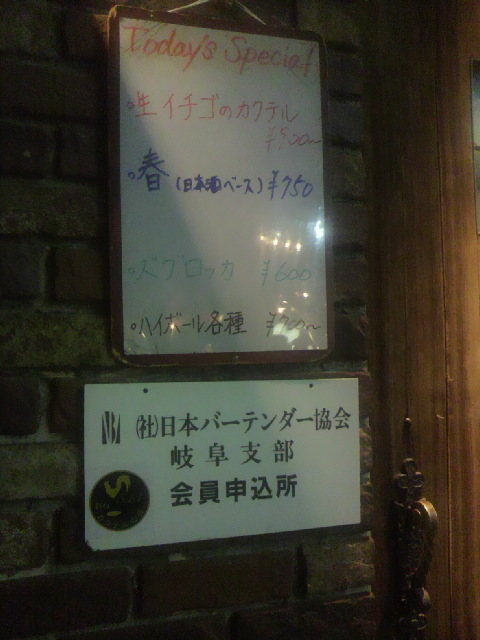 Today's Special
。生イチゴのカクテル
¥900〜
。春(日本酒ベース)¥750
。ズブロッカ ¥600
。ハイボール各種 ¥700〜
(社)日本バーテンダー協会
岐阜支部
会員申込所